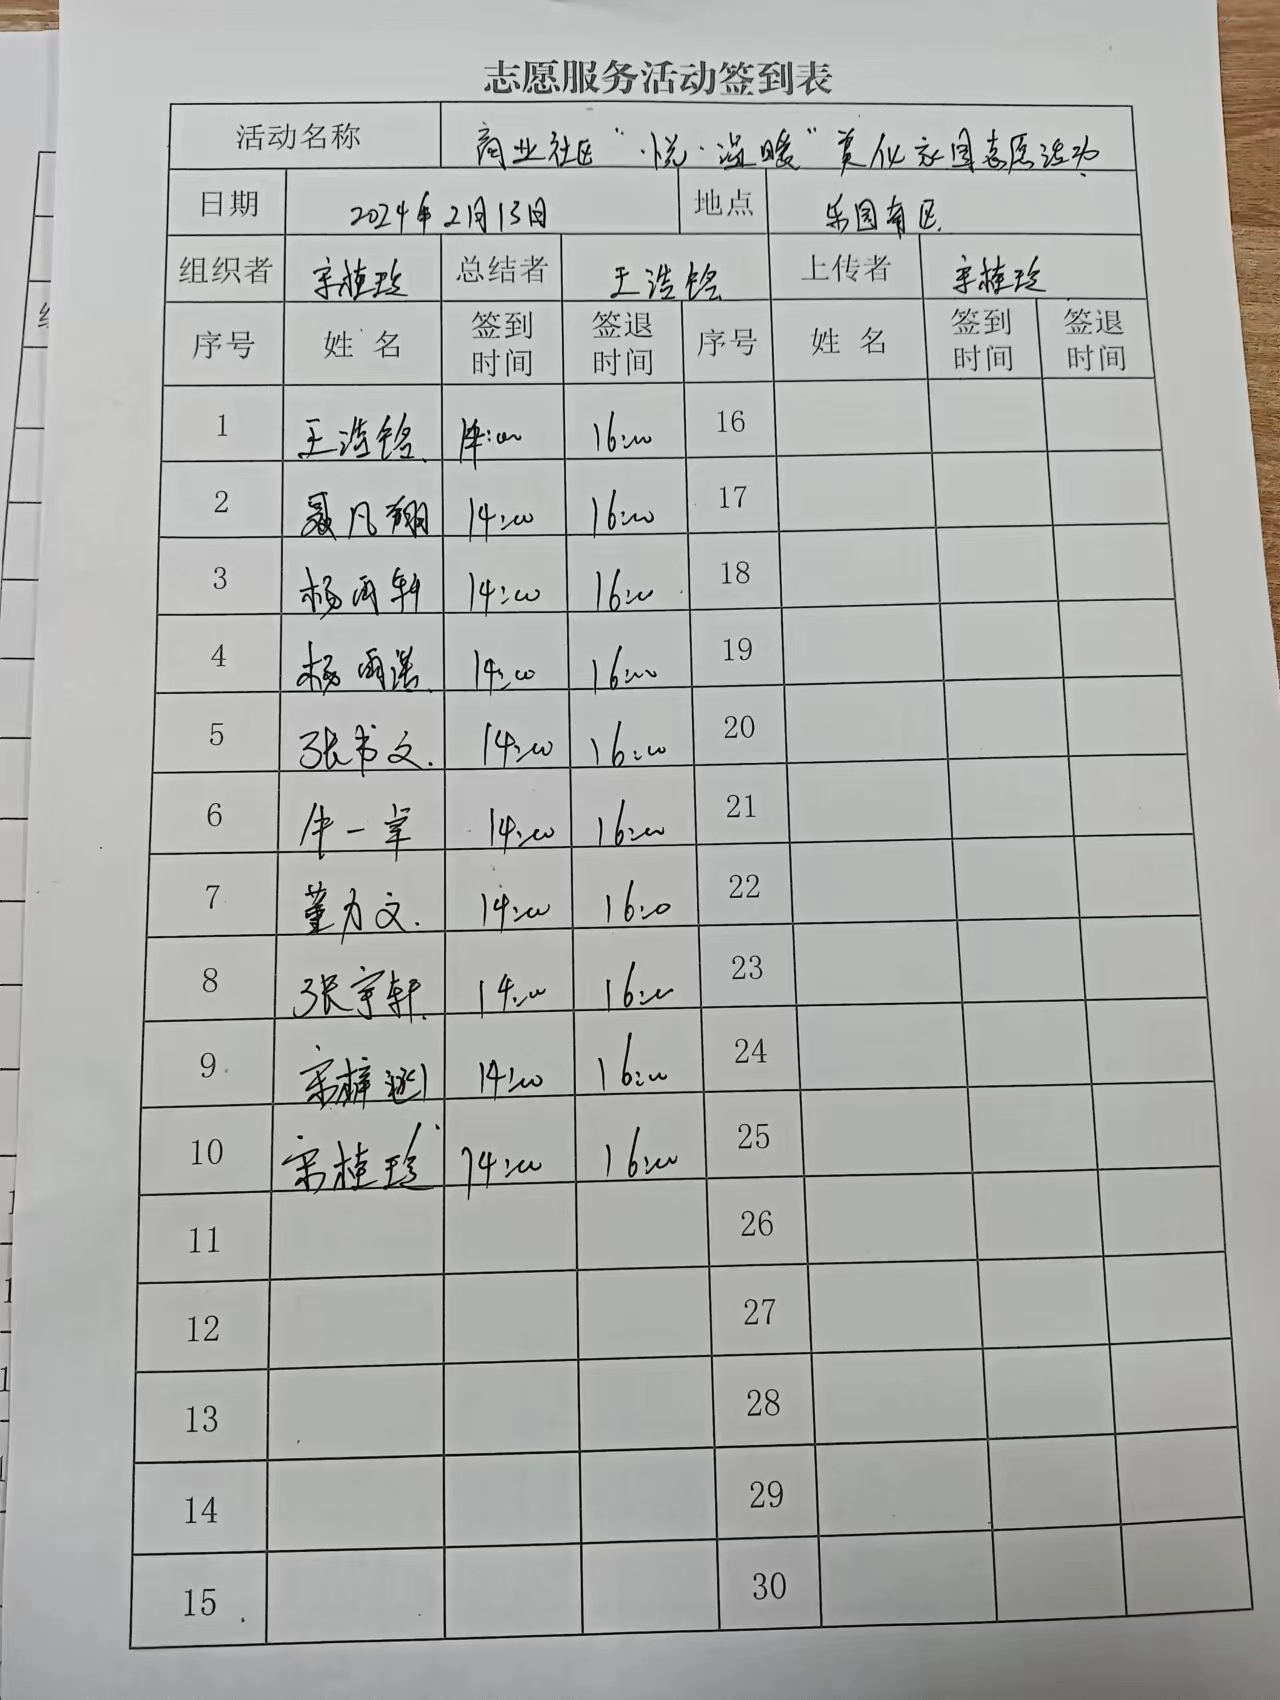 志愿服务活动签到表
活动名称 商业社区“·悦·温暖”美化家园志愿活动
日期 2024年2月13日 地点 乐园南区
组织者 宋桂珍 总结者 王浩铭 上传者 宋桂珍
序号 姓 名 签到时间 签退时间 序号 姓 名 签到时间 签退时间
1 王浩铭 14:00 16:00 16
2 聂凡翔 14:00 16:00 17
3 杨雨轩 14:00 16:00 18
4 杨雨 14:00 16:00 19
5 张书文 14:00 16:00 20
6 牛一卓 14:00 16:00 21
7 董力文 14:00 16:00 22
8 张宇轩 14:00 16:00 23
9 宋梓 14:00 16:00 24
10 宋桂珍 14:00 16:00 25
11 26
12 27
13 28
14 29
15 30